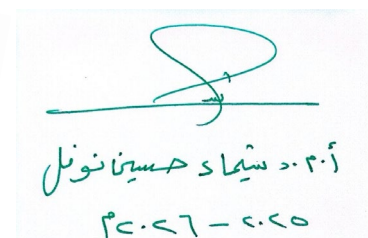 أ.م.د. شيماء حسين نوفل
٢٠٢٥ - ٢٠٢٦م